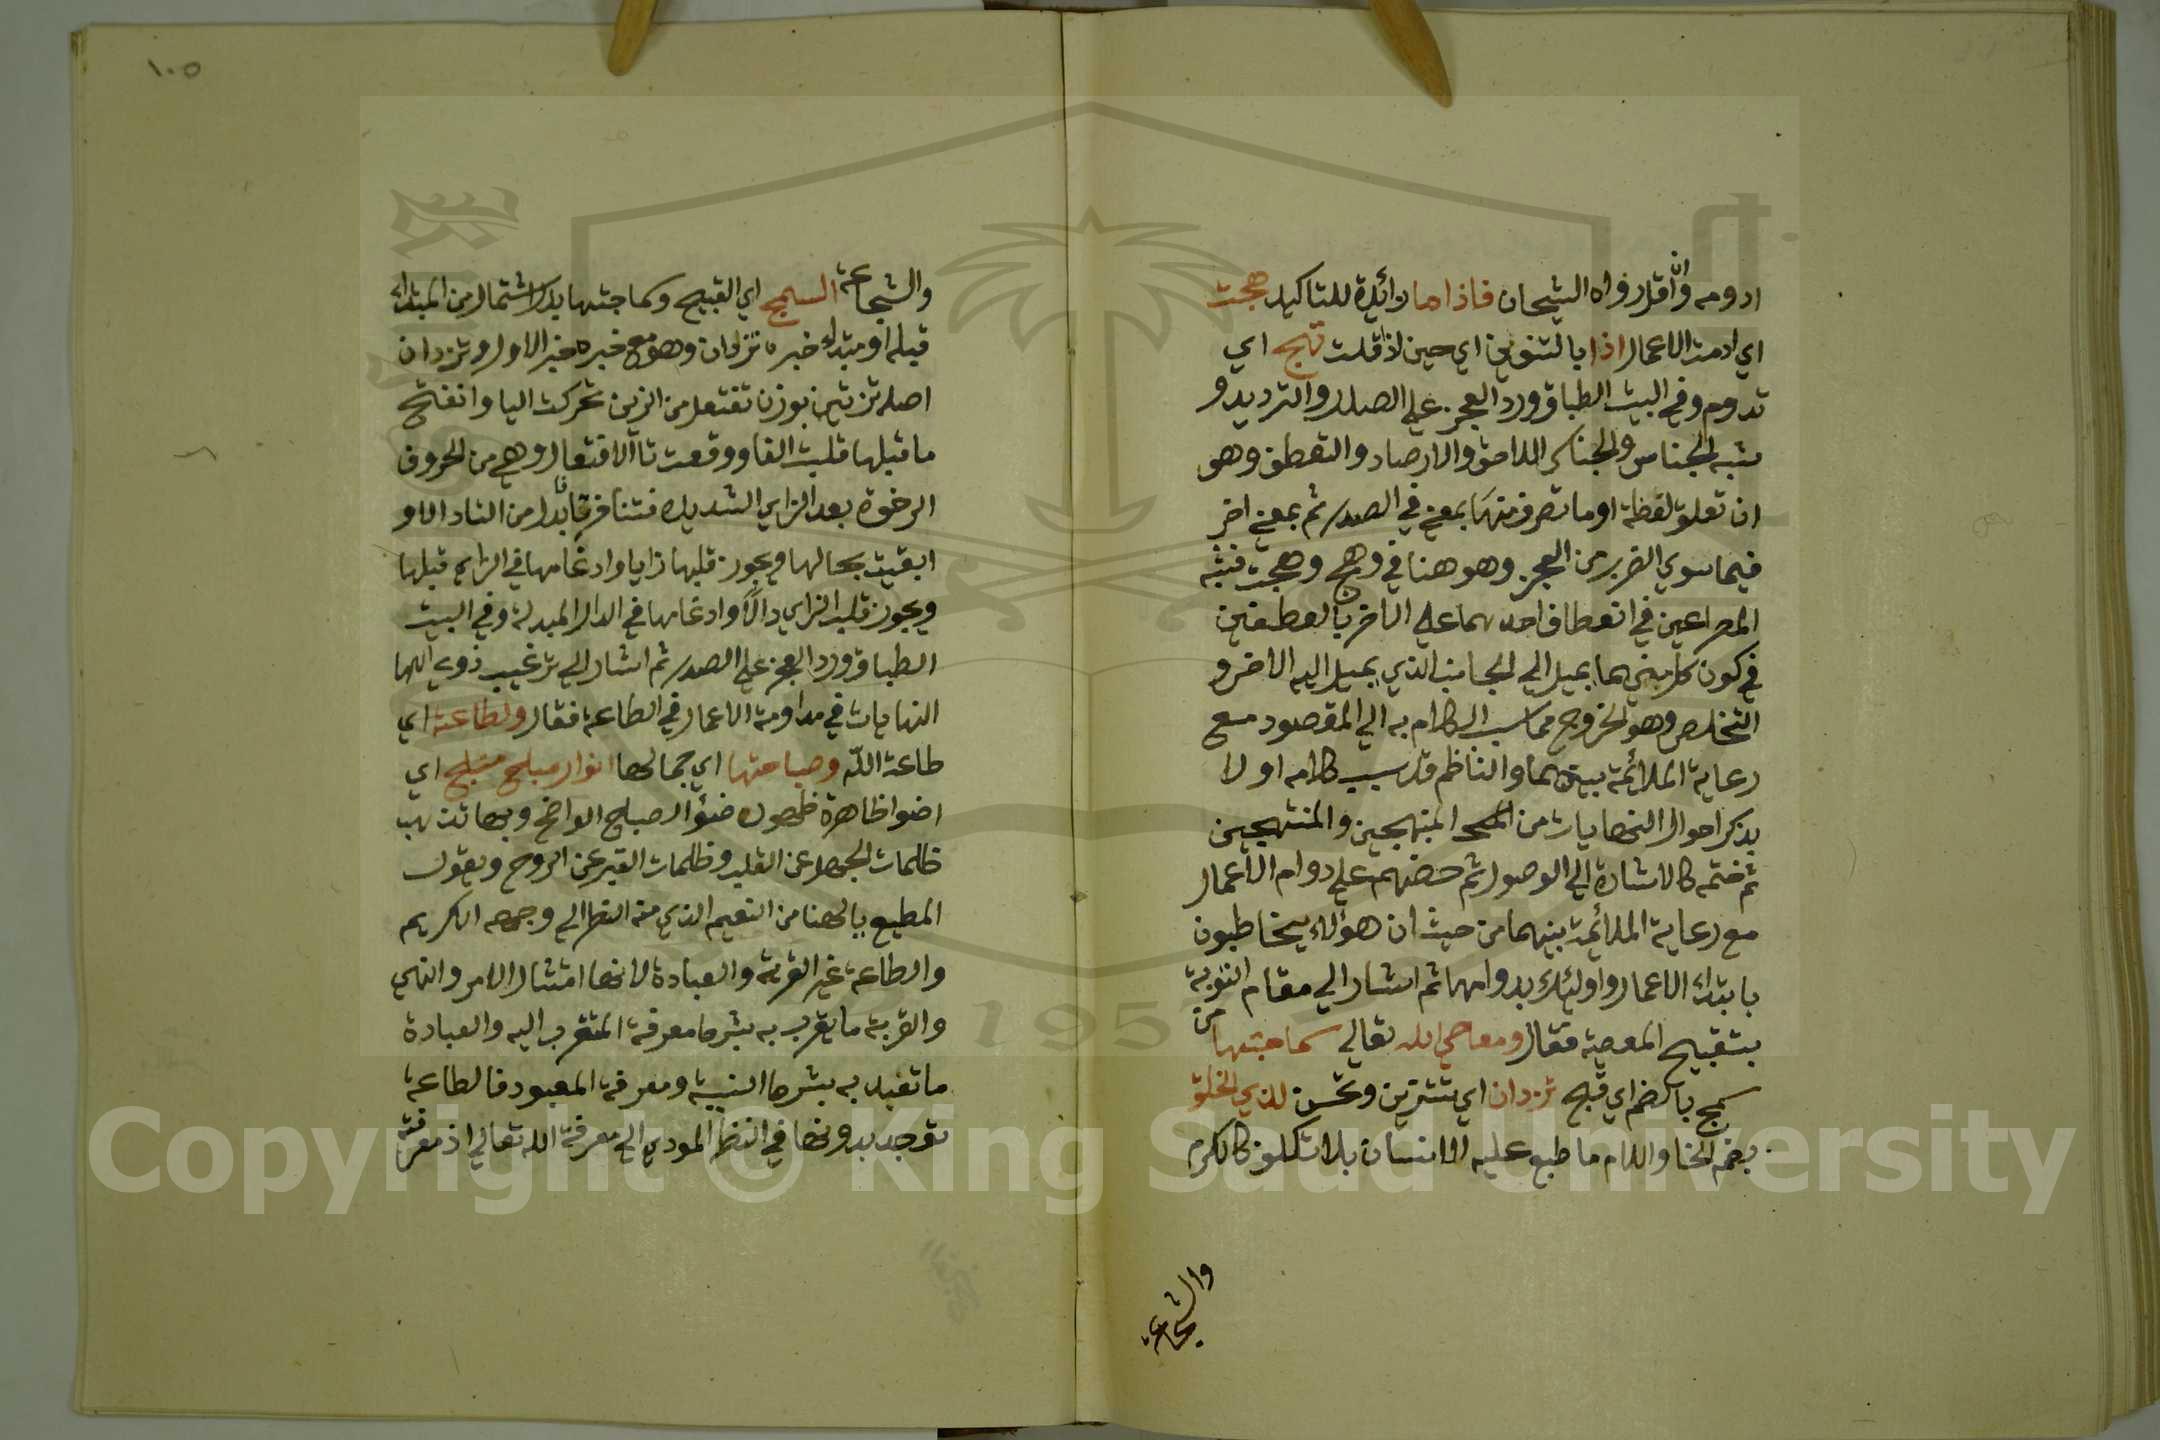 ١٠٥
ادومه وان قل رواه الشيخان فاذا ما زائدة للتاكيد هجت
اي ادمت الاعمال اذا بالتنوين اي حين اذ قلت تهج اي
تدوم وفي البيت الطباق ورد العجز علي الصدر والترديد و
شبه الجناس والجناس اللاحق والارصاد والتعطف وهو
ان تعلق لفظة او ما تصرف منها بمعني في الصدر ثم بمعني اخر
فيما سوي الضرب من العجز وهو هنا في وهج وهجت فشبه
المصراعين في انعطاف احدهما علي الاخر بالعطفين
في كون كل منهما يميل الي الجانب الذي يميل اليه الاخر و
التخلص وهو الخروج مما سبب الكلام به الي المقصود مع
رعاية الملائمة بينهما والناظم قد سبب كلامه اولا
بذكر احوال النهايات من المنهجين والمنتهجين
ثم ختمه كالاشارة الي الوصول ثم حضهم علي دوام الاعمال
مع رعاية الملائمة بينهما من حيث ان هؤلاء يخاطبون
بابتداء الاعمال واولئك بدوامها ثم اشار الي مقام التوبة
بتقبيح المعصية فقال ومعاصي الله تعالي سماجتها من
سمج بالضم اي قبح تزدان اي تتزين وتحسن لذي الخلق
بضم الخا واللام ما طبع عليه الانسان بلا تكلف كالكرم
والشجاعة
والشجاعة السمج اي القبيح وسماجتها بدل اشتمال من المبتداء
قبله او مبتداء خبره تزدان وهو مع خبره خبر الاول وتزدان
اصله تزتين بوزن تفتعل من الزين تحركت اليا وانفتح
ما قبلها قلبت الفا ووقعت تا الافتعال وهي من الحروف
الرخوة بعد الزاي الشديدة فتنافرتا بدل من التاء دال او
ابقيت بحالها ويجوز قلبها زايا وادغامها في الزاي قبلها
ويجوز قلب الزاي دالا وادغامها في الدال المبدلة وفي البيت
الطباق ورد العجز علي الصدر ثم اشار الي ترغيب ذوي
النهايات في مداومة الاعمال في الطاعة فقال ولطاعته اي
طاعة الله وصباحتها اي جمالها انوار صباح منبلج اي
اضوا ظاهرة ظهور ضوء الصباح الواضح وبها تذهب
ظلمات الجهل عن القلب وظلمات القبر عن الروح ويقول
المطيع يا لهنا من النعيم الذي منه النظر الي وجهه الكريم
والطاعة غير القربة والعبادة لانها امتثال الامر والنهي
والقربة ما يقرب به بشرط معرفة المتقرب اليه والعبادة
ما تعبد به بشرط النية ومعرفة المعبود فالطاعة
توجد بدونها في النظر المودي الي معرفة الله تعالي اذ معرفته